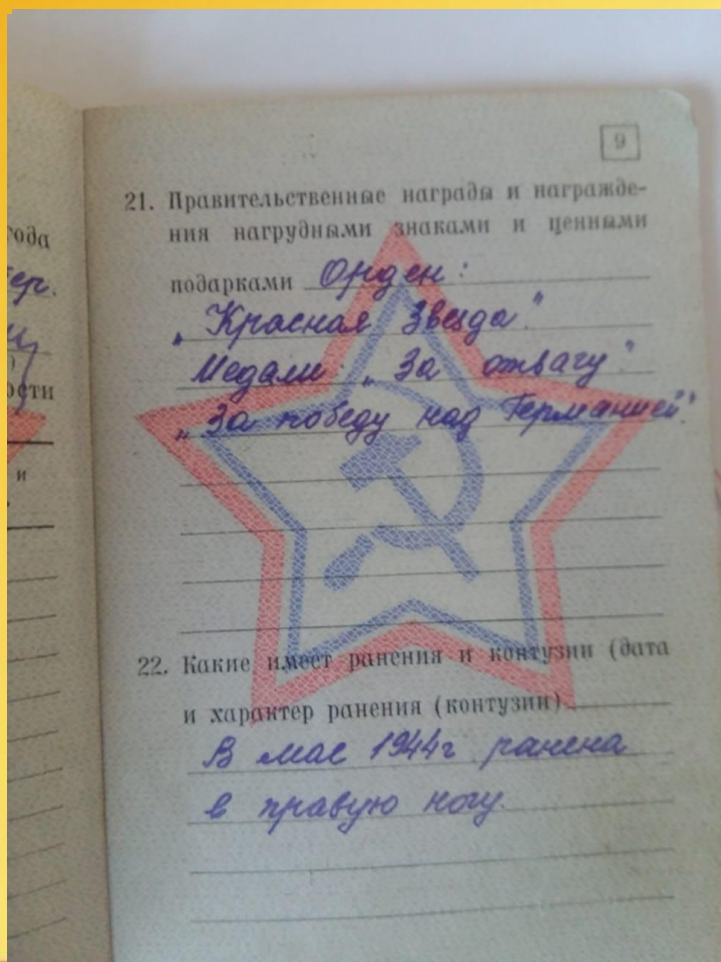 9
21. Правительственные награды и награжде-
ния нагрудными знаками и ценными
подарками Орден:
„Красная Звезда".
Медали: „За отвагу".
„За победу над Германией".
22. Какие имеет ранения и контузии (дата
и характер ранения (контузии)
В мае 1944г ранена
в правую ногу.
года
ер.
)
ости
и